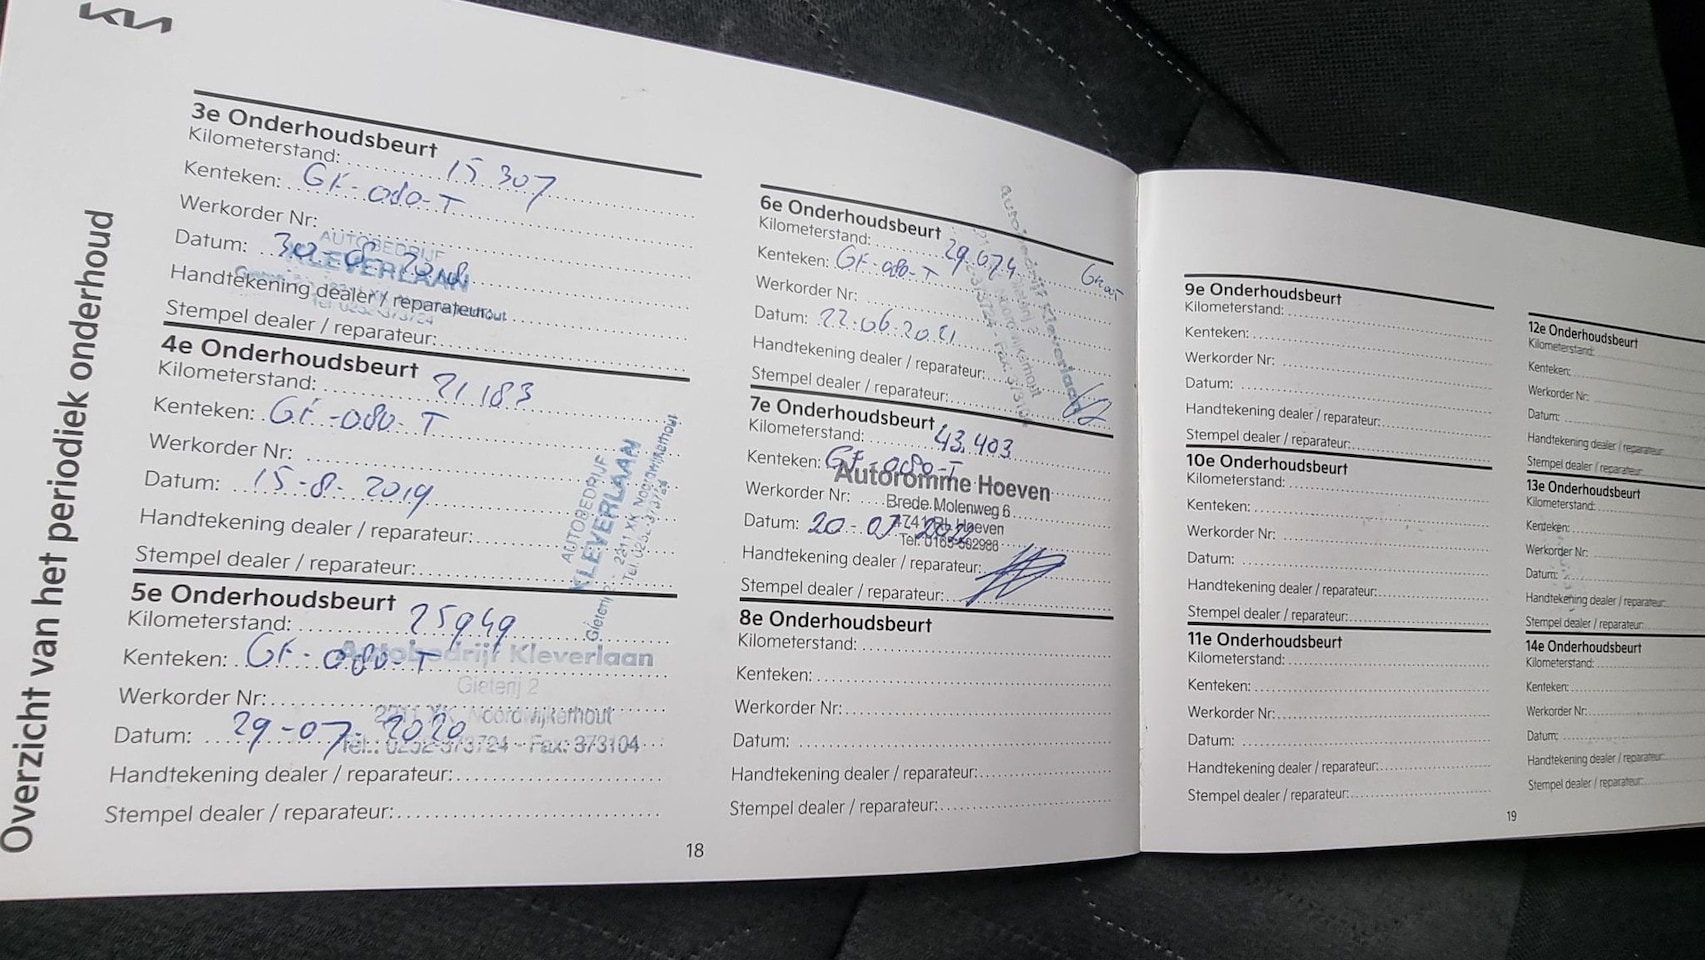 KIA
Overzicht van het periodiek onderhoud
3e Onderhoudsbeurt
Kilometerstand: 15.307
Kenteken: GF-080-T
Werkorder Nr:
AUTOBEDRIJF
Datum: 30-08-2018
KLEVERLAAN
Handtekening dealer / reparateur:
Tel. 0252-373724
Stempel dealer / reparateur:
4e Onderhoudsbeurt
Kilometerstand: 21.183
Kenteken: GF-080-T
Werkorder Nr:
Datum: 15-8-2019
Handtekening dealer / reparateur:
Stempel dealer / reparateur:
AUTOBEDRIJF
KLEVERLAAN
Gieterij 2 2211 XK Noordwijkerhout
Tel. 0252-373724
5e Onderhoudsbeurt
Kilometerstand: 25949
Kenteken: GF-080-T
Autobedrijf Kleverlaan
Gieterij 2
Werkorder Nr:
2211 XK Noordwijkerhout
Datum: 29-07-2020
Tel.: 0252-373724 - Fax: 373104
Handtekening dealer / reparateur:
Stempel dealer / reparateur:
18
6e Onderhoudsbeurt
Kilometerstand: 29.074
Kenteken: GF-080-T
Werkorder Nr:
Datum: 22-06-2021
Handtekening dealer / reparateur:
Stempel dealer / reparateur:
Autobedrijf Kleverlaan
7e Onderhoudsbeurt
Kilometerstand: 43.403
Kenteken: GF-080-T
Autoromme Hoeven
Werkorder Nr:
Brede Molenweg 6
Datum: 20-07
Hoeven
Tel. 0165-502986
Handtekening dealer / reparateur:
Stempel dealer / reparateur:
8e Onderhoudsbeurt
Kilometerstand:
Kenteken:
Werkorder Nr:
Datum:
Handtekening dealer / reparateur:
Stempel dealer / reparateur:
9e Onderhoudsbeurt
Kilometerstand:
Kenteken:
Werkorder Nr:
Datum:
Handtekening dealer / reparateur:
Stempel dealer / reparateur:
10e Onderhoudsbeurt
Kilometerstand:
Kenteken:
Werkorder Nr:
Datum:
Handtekening dealer / reparateur:
Stempel dealer / reparateur:
11e Onderhoudsbeurt
Kilometerstand:
Kenteken:
Werkorder Nr:
Datum:
Handtekening dealer / reparateur:
Stempel dealer / reparateur:
12e Onderhoudsbeurt
Kilometerstand:
Kenteken:
Werkorder Nr:
Datum:
Handtekening dealer / reparateur:
Stempel dealer / reparateur:
13e Onderhoudsbeurt
Kilometerstand:
Kenteken:
Werkorder Nr:
Datum:
Handtekening dealer / reparateur:
Stempel dealer / reparateur:
14e Onderhoudsbeurt
Kilometerstand:
Kenteken:
Werkorder Nr:
Datum:
Handtekening dealer / reparateur:
Stempel dealer / reparateur:
19